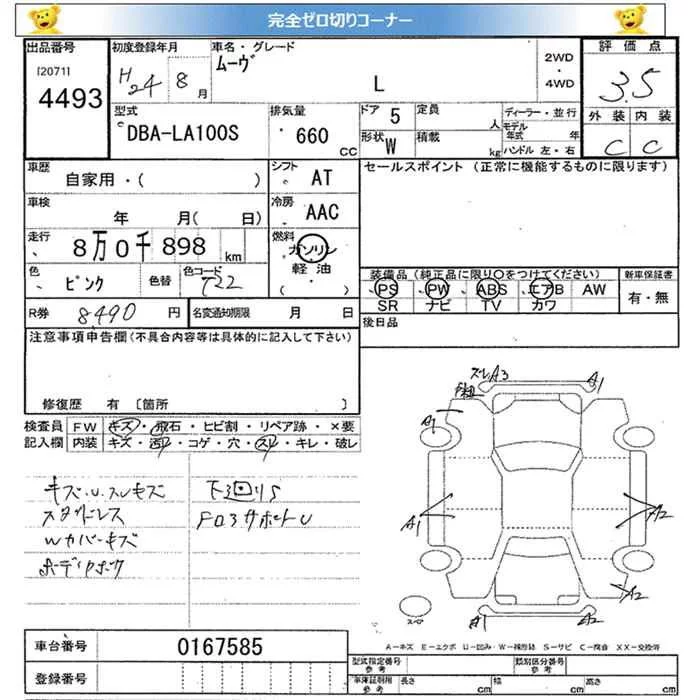 完全ゼロ切りコーナー
出品番号 初度登録年月 車名・グレード 評価点
[2071] 4493 H24 8月 ムーヴ L 2WD・4WD 3.5
型式 排気量 ドア 5 定員 人 ディーラー・並行 外装 内装
DBA-LA100S 660 CC 形状 W 積載 kg モデル年式 年 ハンドル 左・右 C C
車歴 自家用・( ) シフト AT セールスポイント (正常に機能するものに限ります)
車検 年 月( 日) 冷房 AAC
走行 8万0千898 km 燃料 ガソリン 軽油 ( )
装備品(純正品に限り○をつけてください) 新車保証書
色 ピンク 色替 色コード T22 PS PW ABS エアB AW 有・無
SR ナビ TV カワ
R券 8490 円 名変通知期限 月 日 後日品
注意事項申告欄(不具合内容等は具体的に記入して下さい)
修復歴 有 〔箇所 〕
検査員 FW キズ・飛石・ヒビ割・リペア跡・×要
記入欄 内装 キズ・汚れ・コゲ・穴・スレ・キレ・破レ
キズ.U.スレキズ 下廻りS
スタドレス FD3サポートU
Wカバーキズ
スレA3 A1
A1
A1 A2
A2
A1 A2
スペア
A-キズ E-エクボ U-凹み W-補修跡 S-サビ C-腐食 XX-交換済
車台番号 0167585
登録番号
型式指定番号 参考 類別区分番号 参考
車庫証明用 参考 長さ cm 幅 cm 高さ cm